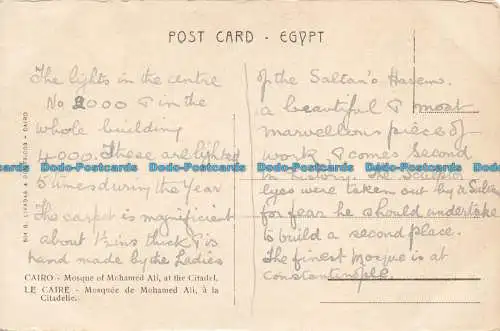 POST CARD - EGYPT
The lights in the centre
No 2000 & in the
whole building
4000. These are lighted
5 times during the Year
The carpet is magnificent
about 1½ins thick & is
hand made by the Ladies
of the Saltan's Harem.
a beautiful & most
marvellous piece of
work & comes second
in
eyes were taken out by a Sultan
for fear he should undertake
to build a second place.
The finest Mosque is at
Constantinople.
CAIRO - Mosque of Mohamed Ali, at the Citadel.
LE CAIRE - Mosquée de Mohamed Ali, à la
Citadelle.